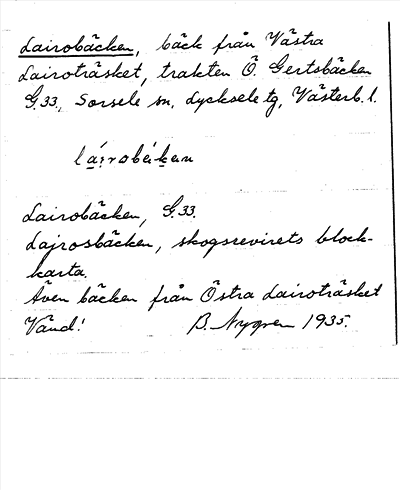 Lairobäcken, bäck från Västra
Lairoträsket, trakten Ö. Gertsbäcken
G.33, Sorsele sn, Lycksele tg, Västerb. l.
Lairobäcken, G.33.
Lajrosbäcken, skogsrevirets block-
karta.
Även bäcken från Östra Lairoträsket
Vänd! B. Nygren 1935.